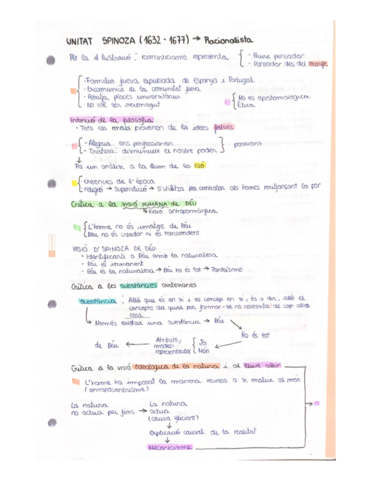 UNITAT SPINOZA (1632 - 1677) → Racionalista
Per la il·lustració i romanticisme representa
- Lliure pensador
- Pensador des del marge
- Família jueva expulsada de Espanya i Portugal
- Excomunió de la comunitat jueva
- Rebutja places universitàries
- No vol ser reconegut
- No és epistemològica
- Ètica
Intenció de la filosofia
- Tots els mals provenen de la idees falses
- Alegria: ens perfeccionen
- Tristesa: disminueix el nostre poder
passions
Fa un anàlisis a la llum de la raó
Creences de l'època
religió → superstició → s'utilitza per controlar als homes mitjançant la por
Crítica a la VISIÓ HUMANA de DÉU
visió antropomòrfica
L'home no és imatge de Déu
Déu no és creador ni és transcendent
VISIÓ D'SPINOZA DE DÉU
- Identificarà a Déu amb la naturalesa
- Déu és immanent
- Déu és la naturalesa → Déu ho és tot → Panteisme
Crítica a les substàncies cartesianes
Substància: Allò que és en si i es concep en si, és a dir, allò el
concepte del qual per formar-se no necessita de cap altra
cosa
Només existeix una substància → Déu
Ho és tot
de Déu ← Atributs, modes, representació
Jo
Món
Crítica a la visió teleològica de la natura i al lliure albir
L'home ha imposat la manera de mirar a si mateix al món
(antropocentrisme)
La natura
no actua per fins →
La natura
actua
(causa eficient)
Explicació causal de la realitat
Mecanicisme